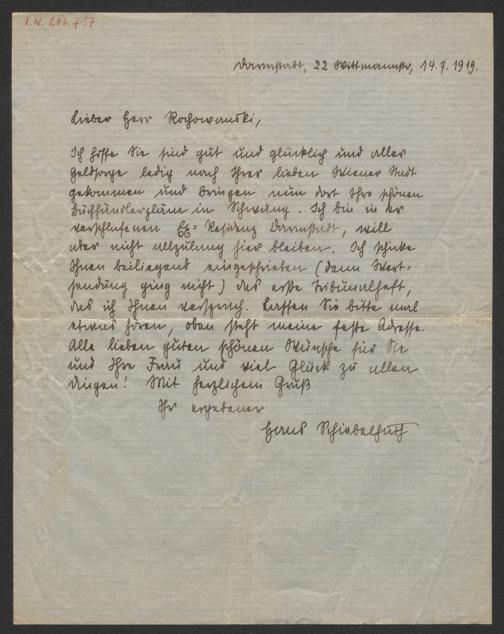 I.N. 206.717
Darmstadt, 22 Wittmannstr, 14.7.1919.
Lieber Herr Rochowanski,
Ich hoffe Sie sind gut und glücklich und aller
Geldsorge ledig nach Ihrer lieben Wiener Stadt
gekommen und bringen nun dort Ihre schönen
Buchhändlerpläne in Schwung. Ich bin in der
verschlafenen Ex-Residenz Darmstadt, will
aber nicht allzulang hier bleiben. Ich schicke
Ihnen beiliegend eingeschrieben (denn Wert-
sendung ging nicht) das erste Tribunalheft,
das ich Ihnen versprach. Lassen Sie bitte mal
etwas hören, oben steht meine feste Adresse.
Alle lieben guten schönen Wünsche für Sie
und Ihre Frau und viel Glück zu allen
Dingen! Mit herzlichem Gruß
Ihr ergebener
Hans Schiebelhuth